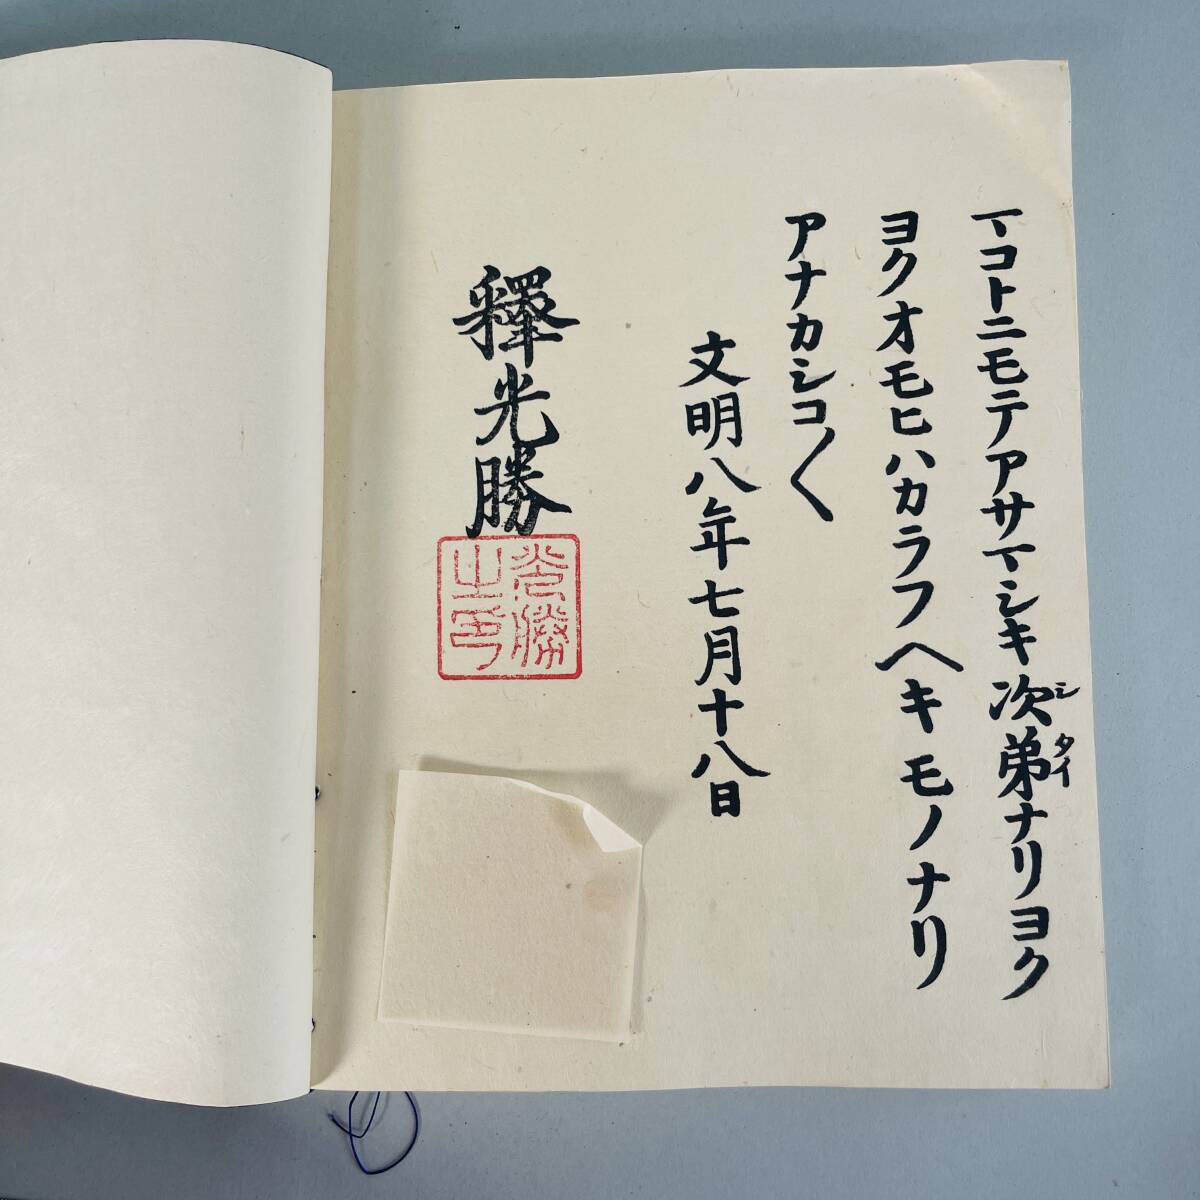 マコトニモテアサマシキ次弟ナリヨク
シタイ
ヨクオモヒハカラフヘキモノナリ
アナカシコ〱
文明八年七月十八日
釋光勝
光勝
之印